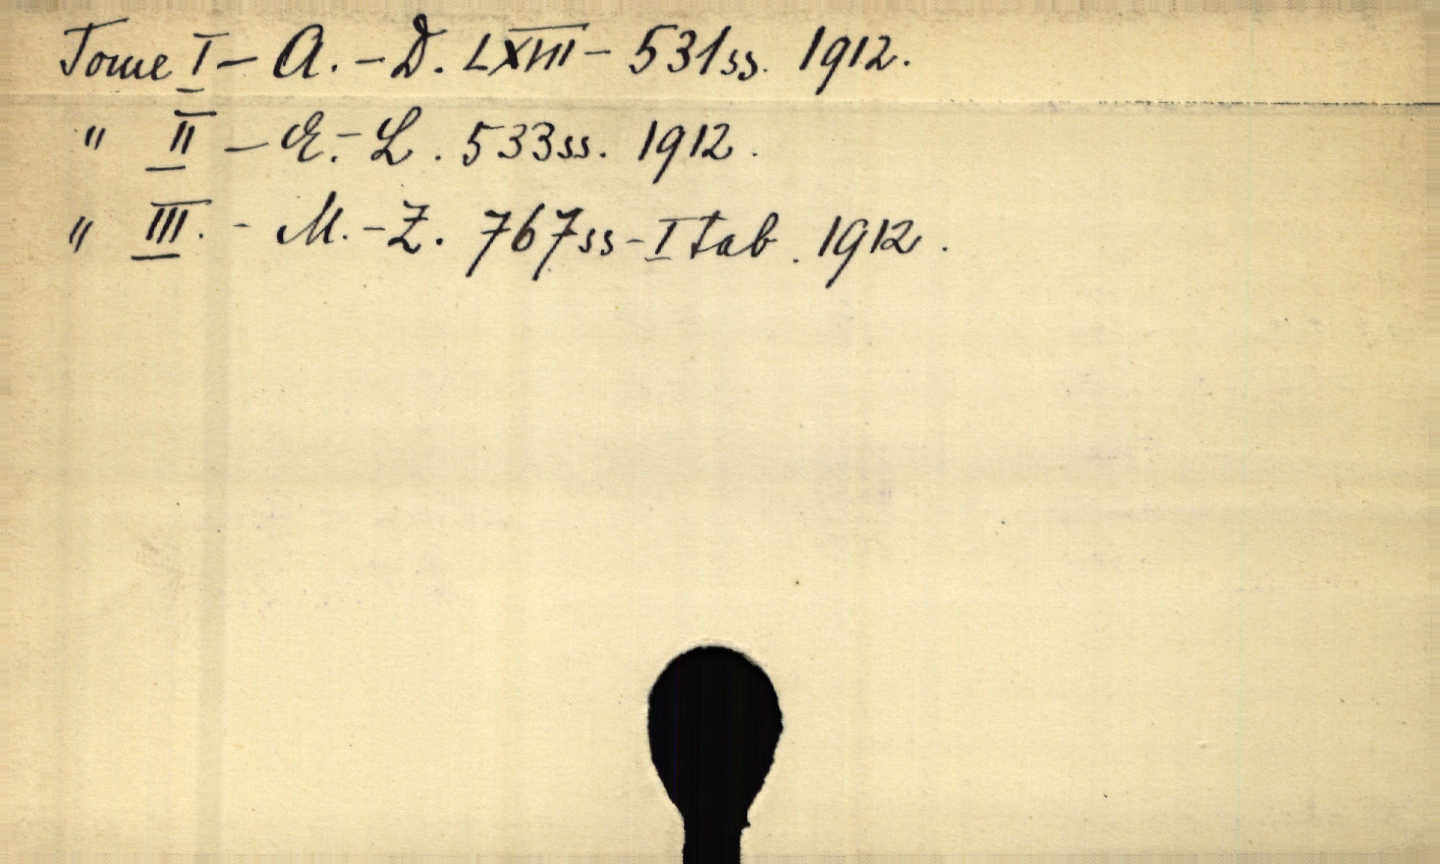 Tome I – A. – D. LXVIII – 531ss. 1912.
" II – E. – L. 533ss. 1912.
" III. - M. – Z. 767ss – I tab. 1912.